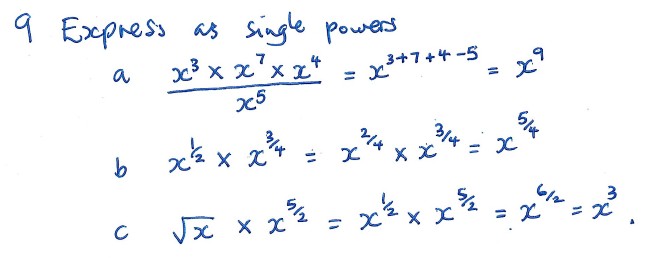 9 Express as single powers
a (x³ × x⁷ × x⁴)/x⁵ = x³⁺⁷⁺⁴⁻⁵ = x⁹
b x^(1/2) × x^(3/4) = x^(2/4) × x^(3/4) = x^(5/4)
c √x × x^(5/2) = x^(1/2) × x^(5/2) = x^(6/2) = x³.